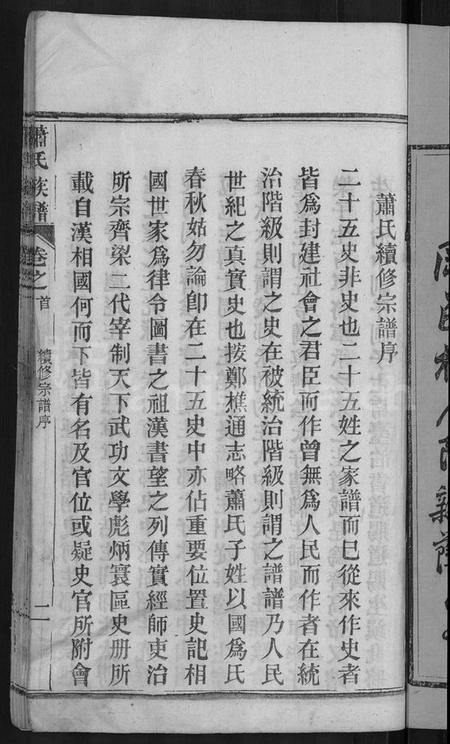 蕭氏續修宗譜序
二十五史非史也二十五姓之家譜而巳從來作史者
皆爲封建社會之君臣而作曾無爲人民而作者在統
治階級則謂之史在被統治階級則謂之譜譜乃人民
世紀之真實史也按鄭樵通志略蕭氏子姓以國爲氏
春秋姑勿論卽在二十五史中亦佔重要位置史記相
國世家爲律令圖書之祖漢書望之列傳實經師吏治
所宗齊梁二代宰制天下武功文學彪炳寰區史册所
載自漢相國何而下皆有名及官位或疑史官所附會
蕭氏族譜 卷之首 續修宗譜序 二